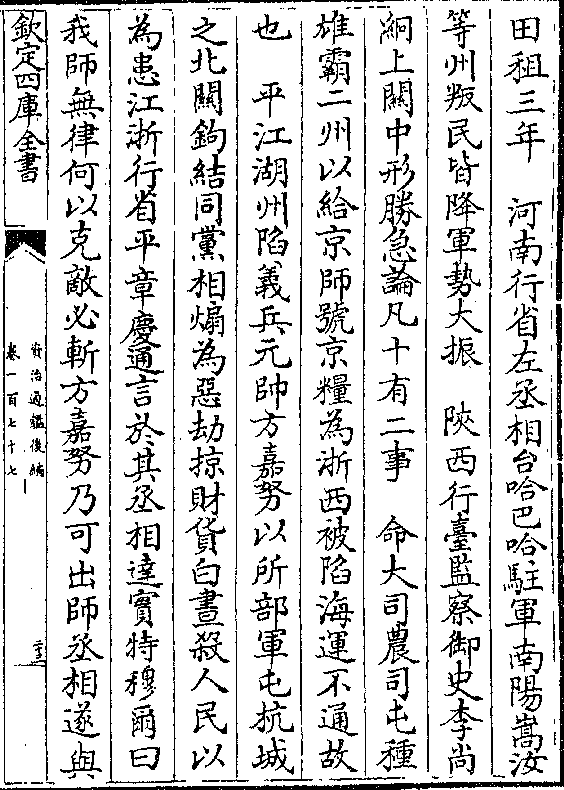 田租三年　河南行省左丞相台哈巴哈駐軍南陽嵩汝
等州叛民皆降軍勢大振　陜西行臺監察御史李尚
絅上關中形勝急論凡十有二事　命大司農司屯種
雄霸二州以給京師號京糧為浙西被陷海運不通故
也　平江湖州陷義兵元帥方嘉努以所部軍屯杭城
之北關鉤結同黨相煽為惡劫掠財貨白晝殺人民以
為患江浙行省平章慶通言於其丞相達實特穆爾曰
我師無律何以克敵必斬方嘉努乃可出師丞相遂與
欽定四庫全書
資治通鑑後編
卷一百七十七